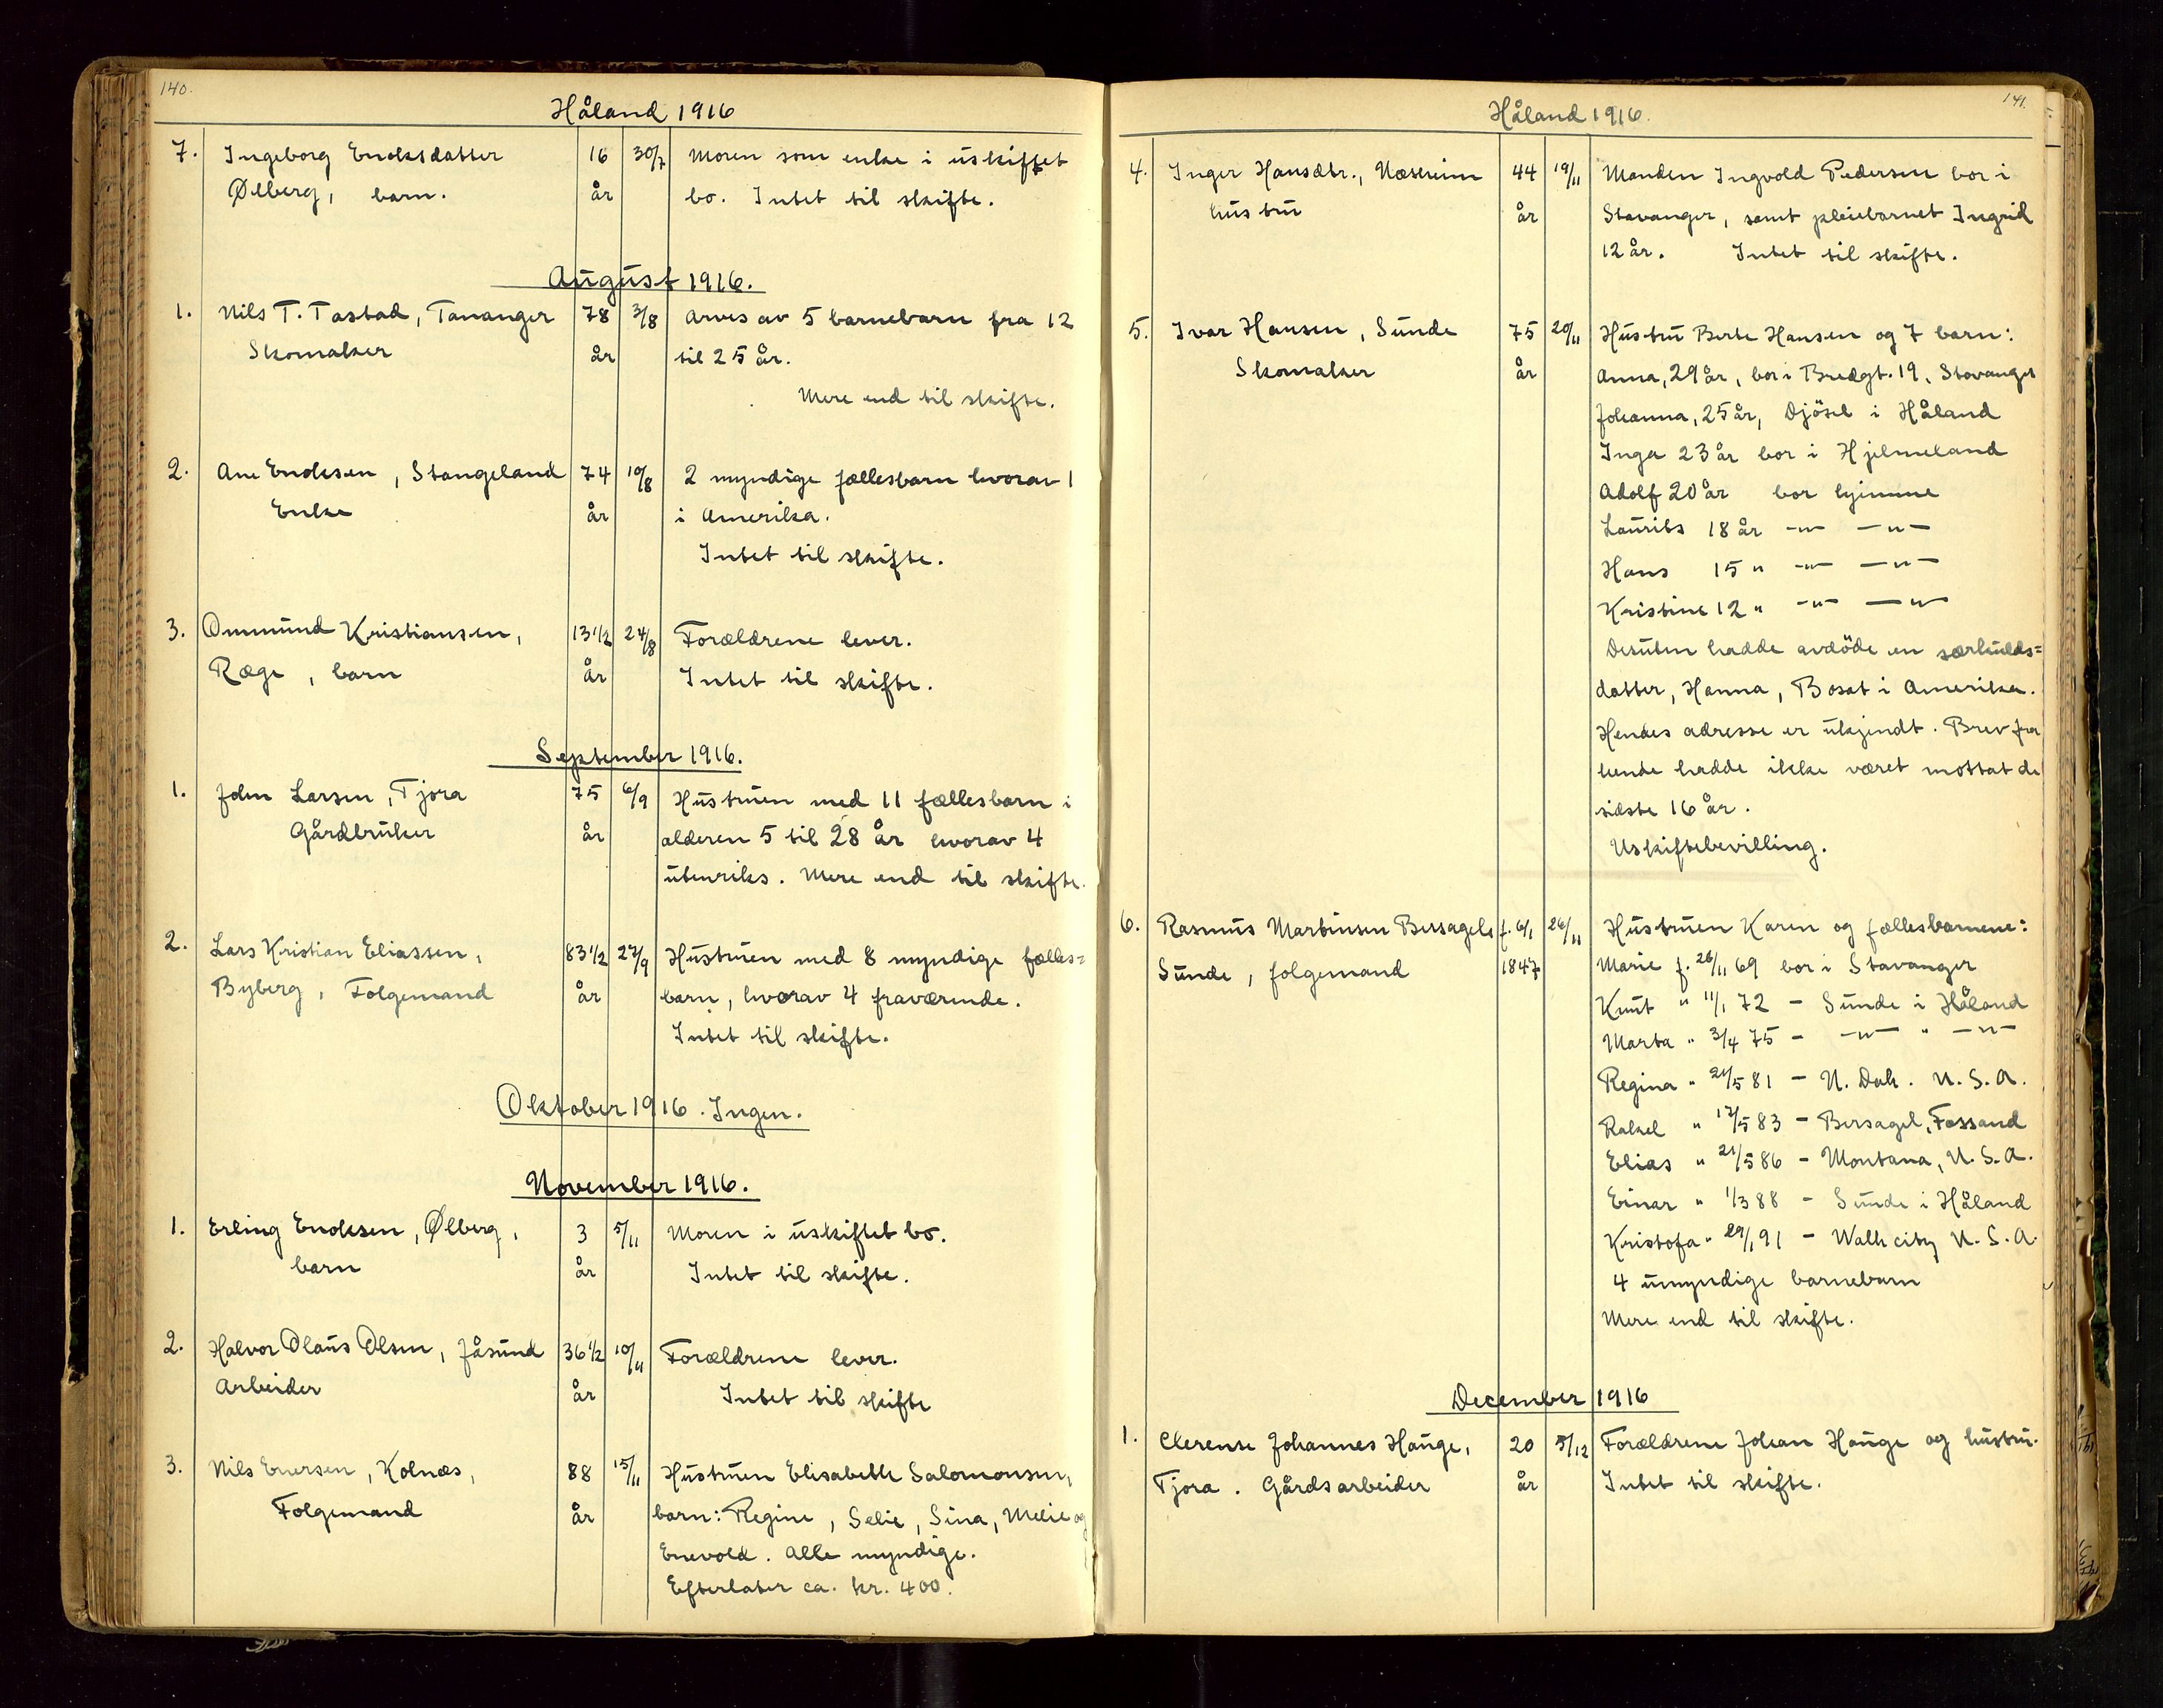 140.
Håland 1916
7. Ingeborg Enoksdatter 16 30/7 Moren som enke i uskiftet
Ølberg, barn. år bo. Intet til skifte.
August 1916.
1. Nils T. Tastad, Tananger 78 3/8 Arves av 5 barnebarn fra 12
Skomaker år til 25 år.
Mere end til skifte.
2. Ane Enoksen, Stangeland 74 10/8 2 myndige fællesbarn hvorav 1
Enke år i Amerika.
Intet til skifte.
3. Ommund Kristiansen, 13 1/2 24/8 Forældrene lever.
Ræge, barn år Intet til skifte.
September 1916.
1. John Larsen, Tjora 75 6/9 Hustruen med 11 fællesbarn i
Gårdbruker år alderen 5 til 28 år hvorav 4
utenriks. Mere end til skifte.
2. Lars Kristian Eliassen, 83 1/2 27/9 Hustruen med 8 myndige fælles=
Byberg, Folgemand år barn, hvorav 4 fraværende.
Intet til skifte.
Oktober 1916. Ingen.
November 1916.
1. Erling Enoksen, Ølberg, 3 5/11 Moren i uskiftet bo.
barn år Intet til skifte.
2. Halvor Olaus Olsen, Jåsund 36 1/2 10/11 Forældrene lever.
Arbeider år Intet til skifte
3. Nils Enersen, Kolnæs, 88 15/11 Hustruen Elisabeth Salomonsen,
Folgemand år barn: Regine, Selie, Sina, Melie og
Enevold. Alle myndige.
Efterlater ca. kr. 400.
141.
Håland 1916.
4. Inger Hansdtr., Næsheim 44 19/11 Manden Ingvold Pedersen bor i
hustru år Stavanger, samt pleiebarnet Ingrid
12 år. Intet til skifte.
5. Ivar Hansen, Sunde 75 20/11 Hustru Berte Hansen og 7 barn:
Skomaker år Anna, 29 år, bor i Bredgt. 19, Stavanger
Johanna, 25 år, Djösel i Håland
Inga 23 år bor i Hjelmeland
Adolf 20 år bor hjemme
Laurits 18 år -"- -"-
Hans 15 " -"- -"-
Kristine 12 " -"- -"-
Desuten hadde avdöde en særkulds=
datter, Hanna, Bosat i Amerika.
Hendes adresse er ukjendt. Brev fra
hende hadde ikke været mottat de
sidste 16 år.
Uskiftebevilling.
6. Rasmus Martinsen Bersagel f. 6/1 26/11 Hustruen Karen og fællesbarnene:
Sunde, folgemand 1847 Marie f. 26/11 69 bor i Stavanger
Knut " 11/1 72 - Sunde i Håland
Marta " 3/4 75 - -"- " -"-
Regina " 21/5 81 - N. Dak. U.S.A.
Rakel " 17/5 83 - Bersagel, Fossand
Elias " 21/5 86 - Montana, U.S.A.
Einar " 1/3 88 - Sunde i Håland
Kristofa " 29/1 91 - Walh city U.S.A.
4 umyndige barnebarn
Mere end til skifte.
December 1916
1. Clerense Johannes Hauge, 20 5/12 Forældrene Johan Hauge og hustru.
Tjora. Gårdsarbeider år Intet til skifte.